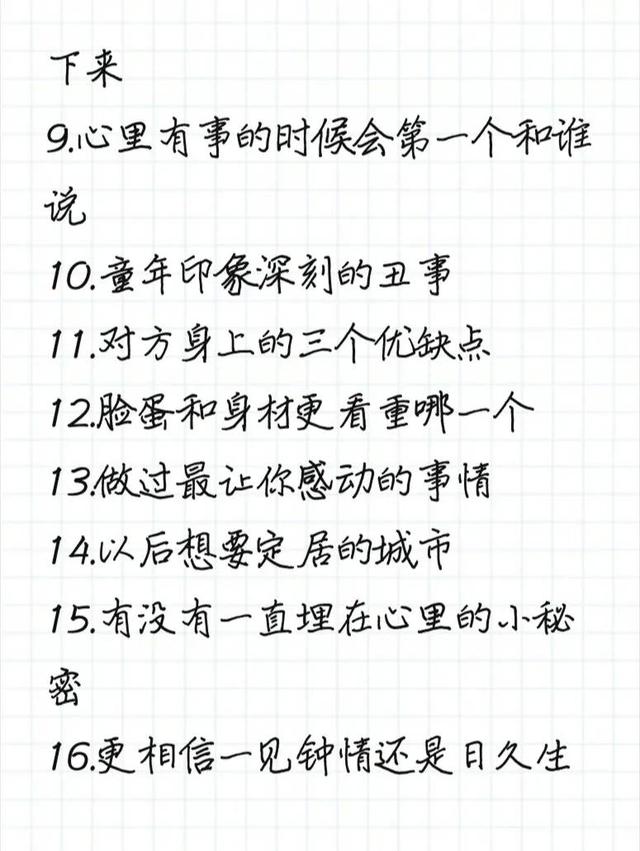 下来
9.心里有事的时候会第一个和谁
说
10.童年印象深刻的丑事
11.对方身上的三个优缺点
12.脸蛋和身材更看重哪一个
13.做过最让你感动的事情
14.以后想要定居的城市
15.有没有一直埋在心里的小秘
密
16.更相信一见钟情还是日久生